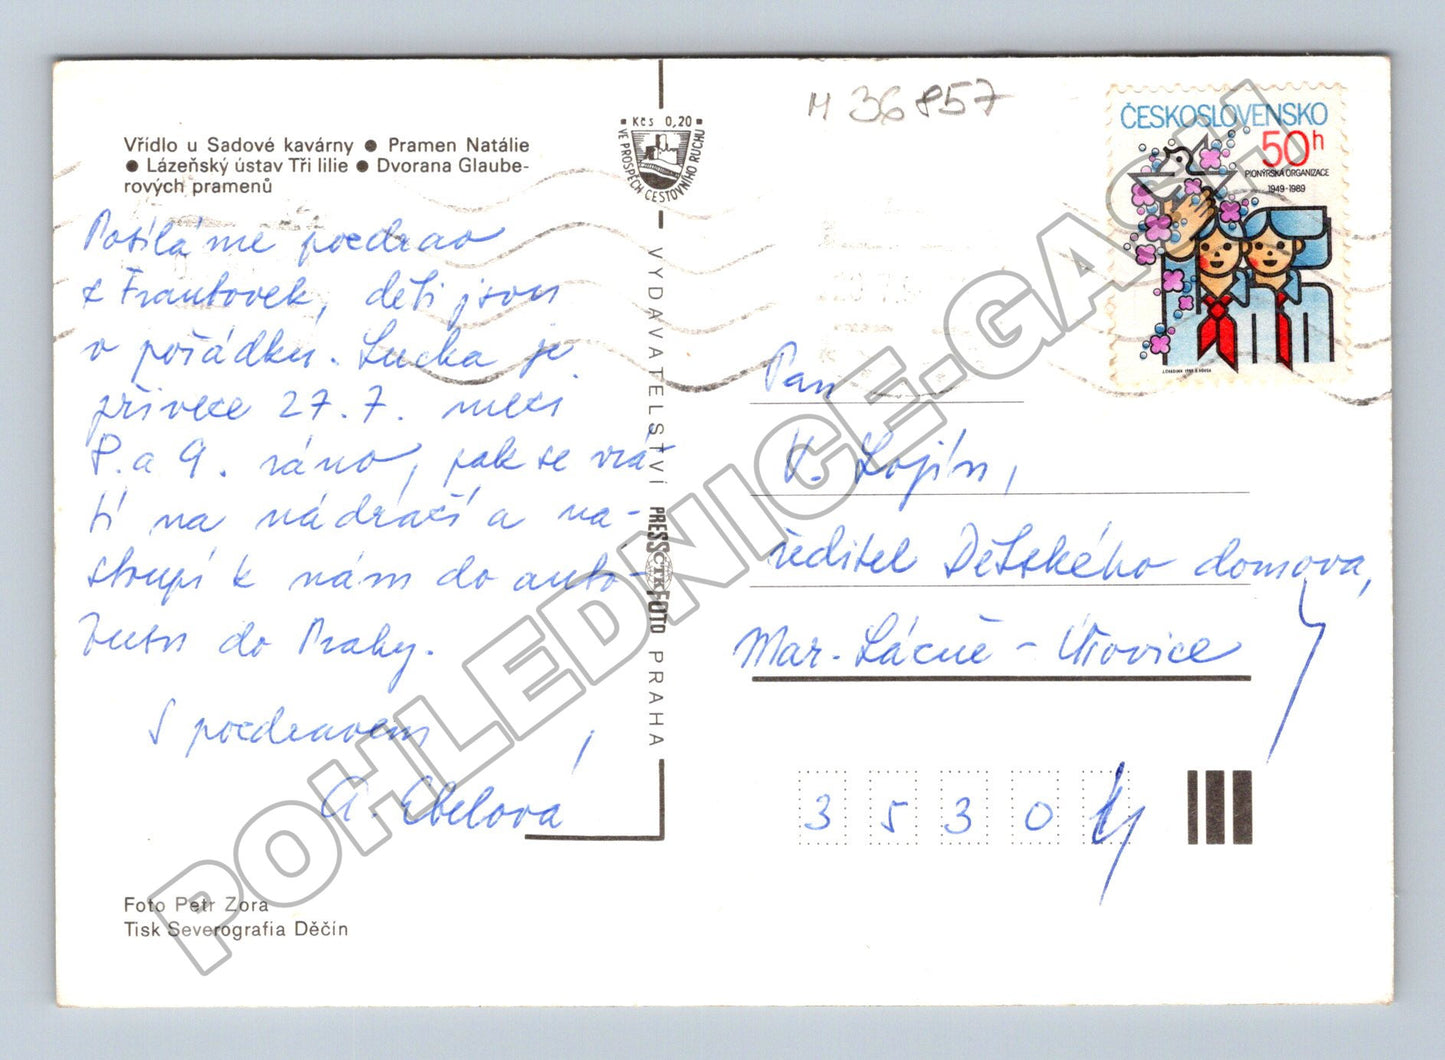 Vřídlo u Sadové kavárny ● Pramen Natálie
● Lázeňský ústav Tři lilie ● Dvorana Glaube-
rových pramenů
Posíláme pozdrav
z Frantovek, děti jsou
v pořádku. Lucka je
přiveze 27. 7. mezi
8. a 9. ráno, pak se vrá-
tí na nádraží a na-
stoupí k nám do auto-
busu do Prahy.
S pozdravem
A. Ebelová
Foto Petr Zora
Tisk Severografia Děčín
Kčs 0,20
VE PROSPĚCH CESTOVNÍHO RUCHU
VYDAVATELSTVÍ PRESSFOTO PRAHA
ČTK
M 36857
ČESKOSLOVENSKO
50h
PIONÝRSKÁ ORGANIZACE
1949-1989
Pan
V. Lojín,
ředitel Dětského domova,
Mar. Lázně - Úšovice
3530
POHLEDNICE.GASH